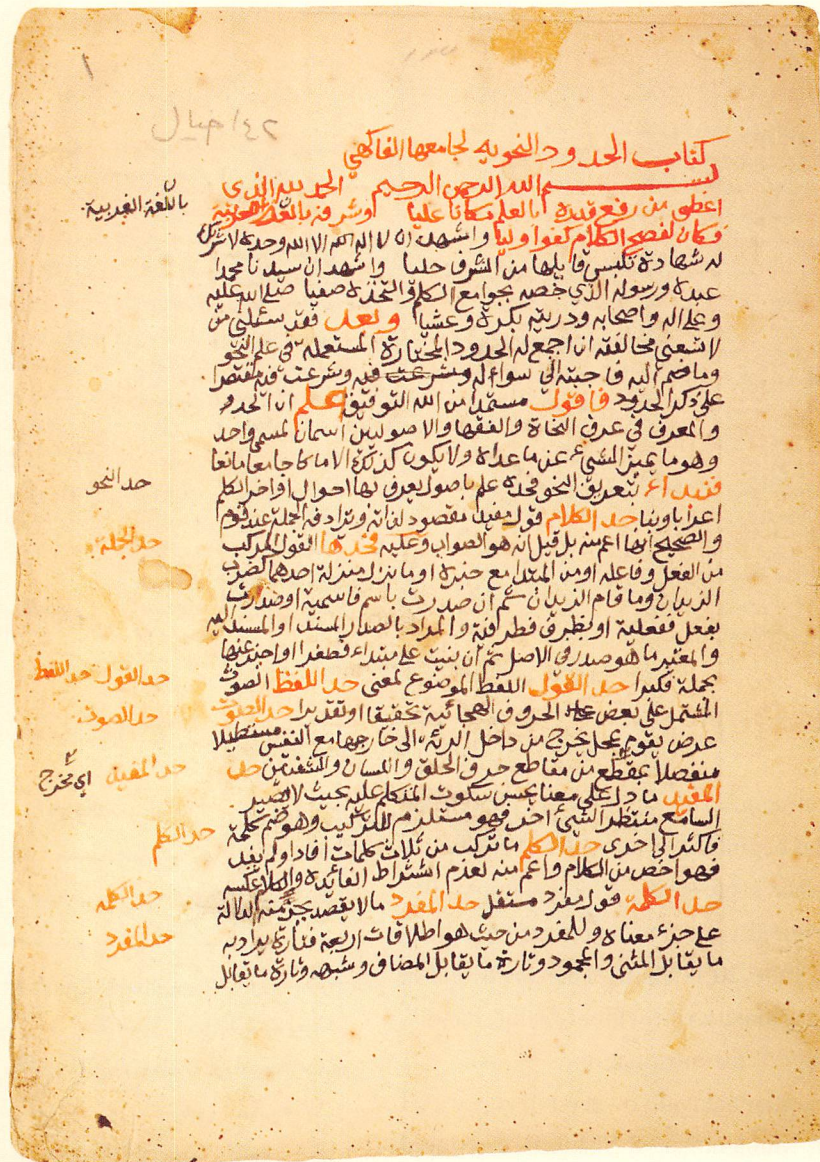 ١
١٤٢ حيال
كتاب الحدود النحويه لجامعها الفاكهي
بسم الله الرحمن الرحيم الحمد لله الذي
اعطى من رفع قيده بالعلم مكانا عليا وشرفه باللغة العربية
باللغة العربية
وكان لفصيح الكلام كفوا وليا واشهد ان لا اله الا الله وحده لا شريك
له شهادة تكسي قايلها من الشرف حليا واشهد ان سيدنا محمدا
عبده ورسوله الذي خصه بجوامع الكلم واتخذه صفيا صلى الله عليه
وعلى اله واصحابه وذريته بكرة وعشيا وبعد فقد سئلني من
لا تسعني مخالفته ان اجمع له الحدود المختارة المستعملة في علم النحو
وما ضم اليه فاجبته الى سواله وشرعت فيه وشرعت فيه مقتصرا
على ذكر الحدود فاقول مستمدا من الله التوفيق اعلم ان الحد
والمعرف في عرف النحاة والفقها والاصوليين اسمان لمسمى واحد
وهو ما يميز الشيء عن ما عداه ولا يكون كذلك الا ما كا جامعا مانعا
فنبداء بتعريف النحو فحده علم باصول يعرف بها احوال اواخر الكلم
حد النحو
اعرابا وبنا حد الكلام قول مفيد مقصود لذاته وترادفه الجملة عند قوم
والصحيح انها اعم منه بل قيل انه هو الصواب وعليه فحدها القول المركب
حد الجملة
من الفعل وفاعله او من المبتدا مع خبره او ما نزل منزلة احدهما كضرب
الزيدان وما قام الزيدان ثم ان صدرت باسم فاسمية او صدرت
بفعل ففعلية او بظرف فظرفية والمراد بالصدر المسند او المسند اليه
والمعتبر ما هو صدر في الاصل ثم ان بنيت على مبتداء فصغرا او اخبر عنها
بجملة فكبرا حد القول اللفظ الموضوع لمعنى حد اللفظ الصوت
حد القول حد اللفظ
المشتمل على بعض الحروف الهجائية تحقيقا او تقديرا حد الصوت
حد الصوت
عرض يقوم بمحل يخرج من داخل الرئة الى خارجها مع النفس مستطيلا
منفصلا بمقطع من مقاطع حروف الحلق واللسان والشفتين حد
حد المفيد
اي مخرج
المفيد ما دل على معنا يحسن سكوت المتكلم عليه بحيث لا يصير
السامع منتظر الشيئ اخر فهو مستلزم للتركيب وهو ضم كلمة
فاكثر الى اخرى حد الكلم ما تركب من ثلاث كلمات افاد او لم يفد
حد الكلم
فهو اخص من الكلام واعم منه لعدم اشتراط الفائدة والكلام عكسه
حد الكلمة قول مفرد مستقل حد المفرد ما لا يقصد بجزء منه الدلالة
حد الكلمه
على جزء معناه وللمفرد من حيث هو اطلاقات اربعة فتارة يراد به
حد المفرد
ما يقابل المثنى والمجمود وتارة ما يقابل المضاف وشبهه وتارة ما يقابل